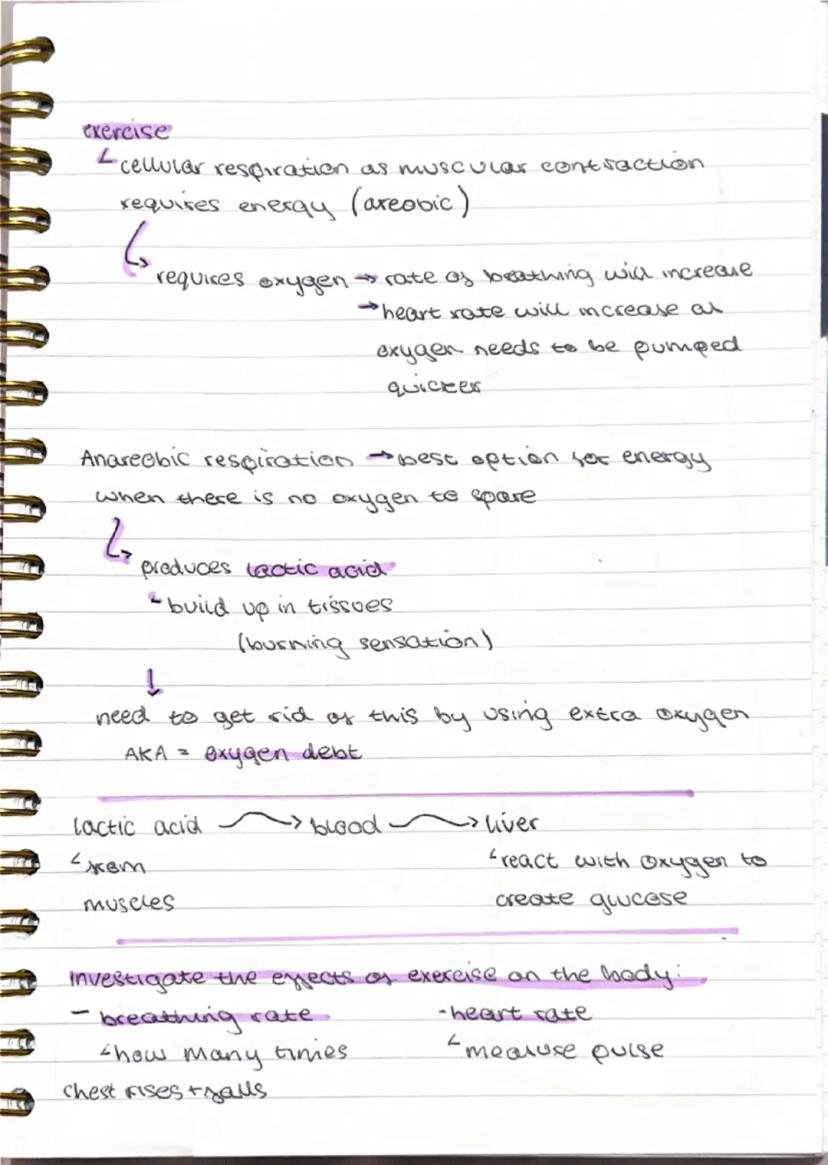 exercise
cellular respiration as muscular contraction
requires energy (areobic)
requires oxygen → rate of breathing will increase
→ heart rate will increase as
oxygen needs to be pumped
quicker
Anareobic respiration → best option for energy
when there is no oxygen to spare
produces lactic acid
build up in tissues
(burning sensation)
need to get rid of this by using extra oxygen
AKA = oxygen debt
lactic acid → blood → liver
from react with oxygen to
muscles create glucose
investigate the effects of exercise on the body:
- breathing rate - heart rate
how many times measure pulse
chest rises + falls